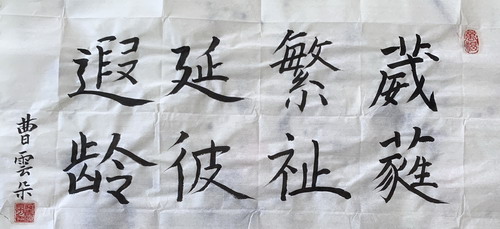 葳蕤
繁祉
延彼
遐龄
曹雲朵